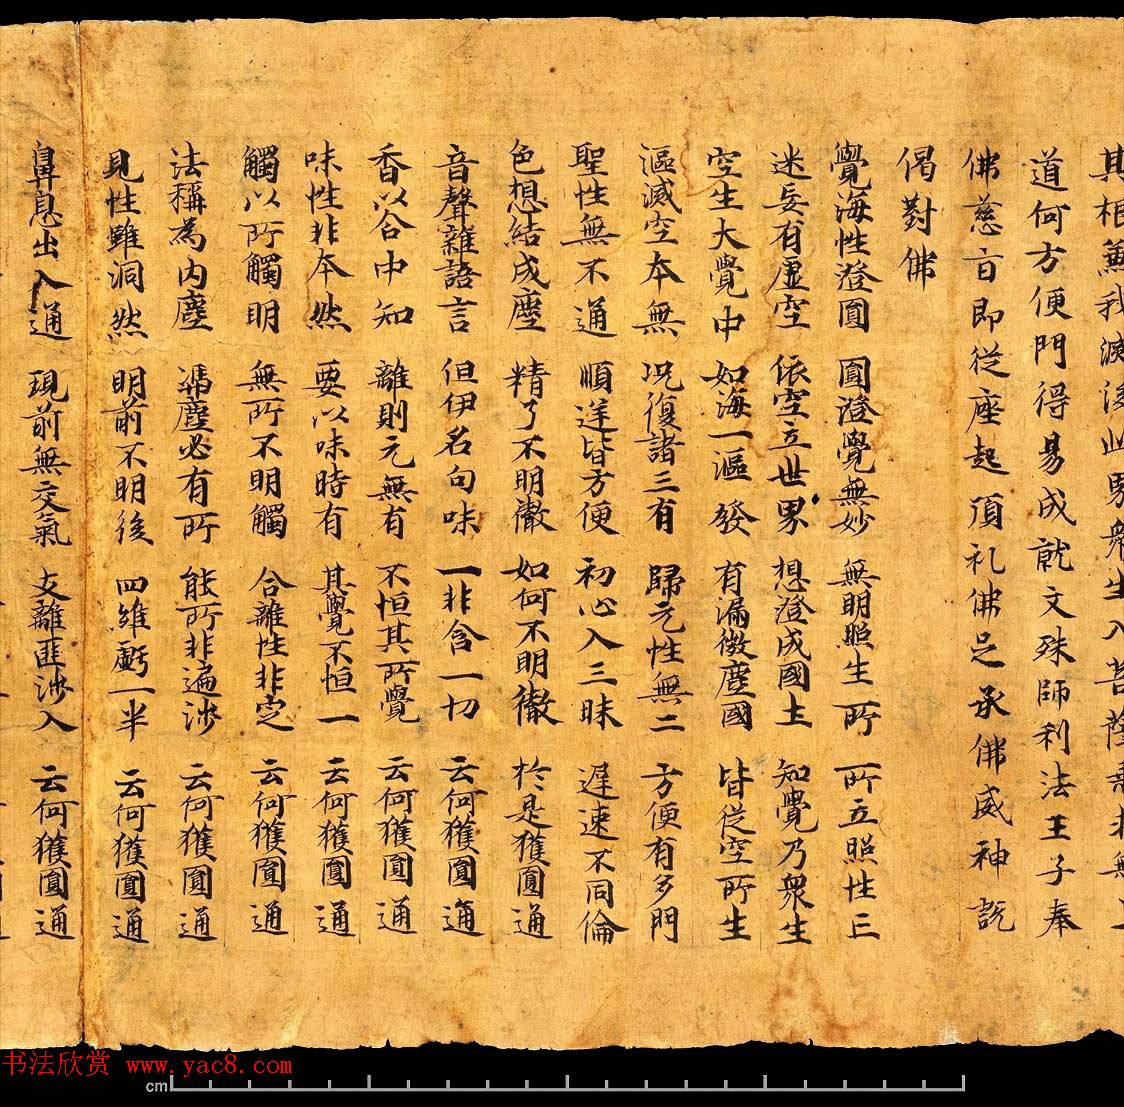 其根兼我滅後此界衆生入菩薩乘求無上
道何方便門得易成就文殊師利法王子奉
佛慈旨即從座起頂礼佛足承佛威神說
偈對佛
覺海性澄圓 圓澄覺無妙 無明照生所 所立照性三
迷妄有虛空 依空立世界 想澄成國土 知覺乃衆生
空生大覺中 如海一漚發 有漏微塵國 皆從空所生
漚滅空本無 況復諸三有 歸元性無二 方便有多門
聖性無不通 順逆皆方便 初心入三昧 遲速不同倫
色想結成塵 精了不明徹 如何不明徹 於是獲圓通
音聲雜語言 但伊名句味 一非含一切 云何獲圓通
香以合中知 離則元無有 不恒其所覺 云何獲圓通
味性非本然 要以味時有 其覺不恒一 云何獲圓通
觸以所觸明 無所不明觸 合離性非定 云何獲圓通
法稱為内塵 憑塵必有所 能所非遍涉 云何獲圓通
見性雖洞然 明前不明後 四維虧一半 云何獲圓通
鼻息出入通 現前無交氣 支離匪涉入 云何獲圓通
书法欣赏 www.yac8.com
cm